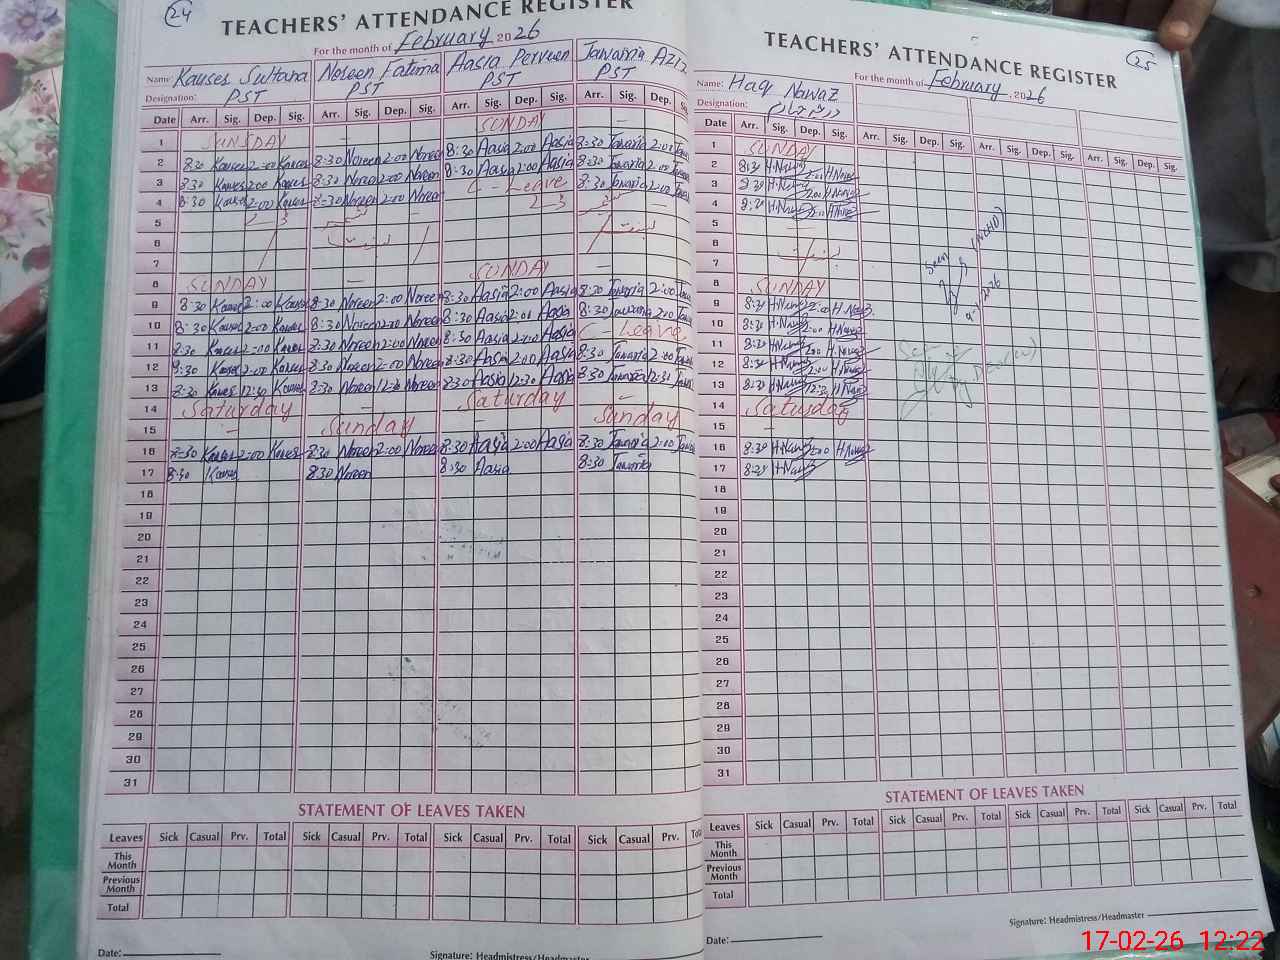 24
TEACHERS' ATTENDANCE REGISTER
For the month of February 2026
Name: Kauser Sultana Noreen Fatima Aasia Perveen Jawairia Aziz
Designation: PST PST PST PST
Date Arr. Sig. Dep. Sig. Arr. Sig. Dep. Sig. Arr. Sig. Dep. Sig. Arr. Sig. Dep. Sig.
1 SUNSDAY - SUNDAY -
2 8:30 Kauser 2:00 Kauser 8:30 Noreen 2:00 Noreen 8:30 Aasia 2:00 Aasia 8:30 Jawairia 2:00
3 8:30 Kauser 2:00 Kauser 8:30 Noreen 2:00 Noreen 8:30 Aasia 2:00 Aasia 8:30 Jawairia 2:00
4 8:30 Kauser 2:00 Kauser 8:30 Noreen 2:00 Noreen C - Leave 8:30 Jawairia 2:00
5
6
7
8 SUNDAY - SUNDAY -
9 8:30 Kauser 2:00 Kauser 8:30 Noreen 2:00 Noreen 8:30 Aasia 2:00 Aasia 8:30 Jawairia 2:00
10 8:30 Kauser 2:00 Kauser 8:30 Noreen 2:00 Noreen 8:30 Aasia 2:00 Aasia 8:30 Jawairia 2:00
11 8:30 Kauser 2:00 Kauser 8:30 Noreen 2:00 Noreen 8:30 Aasia 2:00 Aasia C - Leave
12 8:30 Kauser 2:00 Kauser 8:30 Noreen 2:00 Noreen 8:30 Aasia 2:00 Aasia 8:30 Jawairia 2:00
13 8:30 Kauser 12:30 Kauser 8:30 Noreen 12:30 Noreen 8:30 Aasia 12:30 Aasia 8:30 Jawairia 12:30
14 Saturday - Saturday -
15 - Sunday - Sunday
16 8:30 Kauser 2:00 Kauser 8:30 Noreen 2:00 Noreen 8:30 Aasia 2:00 Aasia 8:30 Jawairia 2:00
17 8:30 Kauser 8:30 Noreen 8:30 Aasia 8:30 Jawairia
18
19
20
21
22
23
24
25
26
27
28
29
30
31
STATEMENT OF LEAVES TAKEN
Leaves Sick Casual Prv. Total Sick Casual Prv. Total Sick Casual Prv. Total Sick Casual Prv.
This Month
Previous Month
Total
Date:
Signature: Headmistress/Headmaster
25
TEACHERS' ATTENDANCE REGISTER
For the month of February, 2026
Name: Haq Nawaz
Designation:
Date Arr. Sig. Dep. Sig. Arr. Sig. Dep. Sig. Arr. Sig. Dep. Sig. Arr. Sig. Dep. Sig.
1 SUNDAY
2 8:30 H.Nawaz 2:00 H.Nawaz
3 8:30 H.Nawaz 2:00 H.Nawaz
4 8:30 H.Nawaz 2:00 H.Nawaz
5
6
7
8 SUNDAY
9 8:30 H.Nawaz 2:00 H.Nawaz
10 8:30 H.Nawaz 2:00 H.Nawaz
11 8:30 H.Nawaz 2:00 H.Nawaz
12 8:30 H.Nawaz 2:00 H.Nawaz
13 8:30 H.Nawaz 12:30 H.Nawaz
14 Saturday
15 -
16 8:30 H.Nawaz 2:00 H.Nawaz
17 8:30 H.Nawaz
18
19
20
21
22
23
24
25
26
27
28
29
30
31
Seen
STATEMENT OF LEAVES TAKEN
Leaves Sick Casual Prv. Total Sick Casual Prv. Total Sick Casual Prv. Total Sick Casual Prv. Total
This Month
Previous Month
Total
Signature: Headmistress/Headmaster
Date:
17-02-26 12:22